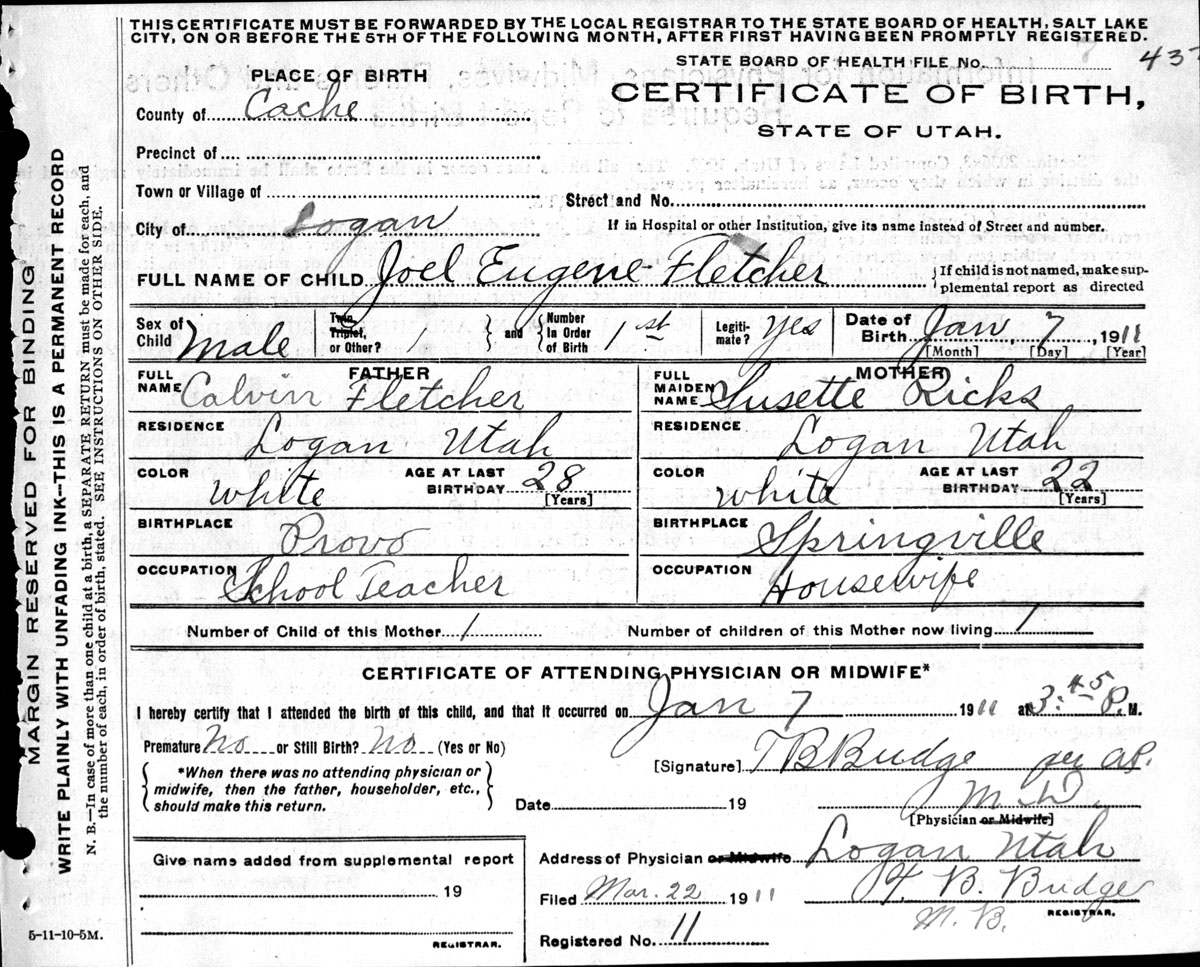 THIS CERTIFICATE MUST BE FORWARDED BY THE LOCAL REGISTRAR TO THE STATE BOARD OF HEALTH, SALT LAKE
CITY, ON OR BEFORE THE 5TH OF THE FOLLOWING MONTH, AFTER FIRST HAVING BEEN PROMPTLY REGISTERED.
STATE BOARD OF HEALTH FILE NO. 437
PLACE OF BIRTH
CERTIFICATE OF BIRTH,
STATE OF UTAH.
County of Cache
Precinct of
Town or Village of
Street and No.
City of Logan
If in Hospital or other Institution, give its name instead of Street and number.
FULL NAME OF CHILD Joel Eugene Fletcher
If child is not named, make sup-
plemental report as directed
Sex of Child Male
Twin, Triplet, or Other? 1 and Number In Order of Birth 1st
Legiti-
mate? Yes
Date of Birth Jan, 7, 1911
[Month] [Day] [Year]
FATHER
FULL NAME Calvin Fletcher
RESIDENCE Logan Utah
COLOR White AGE AT LAST BIRTHDAY 28 [Years]
BIRTHPLACE Provo
OCCUPATION School Teacher
MOTHER
FULL MAIDEN NAME Susette Ricks
RESIDENCE Logan Utah
COLOR White AGE AT LAST BIRTHDAY 22 [Years]
BIRTHPLACE Springville
OCCUPATION Housewife
Number of Child of this Mother 1 Number of children of this Mother now living 1
CERTIFICATE OF ATTENDING PHYSICIAN OR MIDWIFE*
I hereby certify that I attended the birth of this child, and that it occurred on Jan 7 1911 at 3:45 P.M.
Premature No or Still Birth? No (Yes or No)
*When there was no attending physician or
midwife, then the father, householder, etc.,
should make this return.
[Signature] T B Budge per
M.D.
Date 19
[Physician or Midwife]
Give name added from supplemental report
19
REGISTRAR.
Address of Physician or Midwife Logan Utah
Filed Mar. 22 1911 T. B. Budge
M.D. REGISTRAR.
Registered No. 11
5-11-10-5M.
MARGIN RESERVED FOR BINDING
WRITE PLAINLY WITH UNFADING INK—THIS IS A PERMANENT RECORD
N. B.—In case of more than one child at a birth, a SEPARATE RETURN must be made for each, and
the number of each, in order of birth, stated. SEE INSTRUCTIONS ON OTHER SIDE.